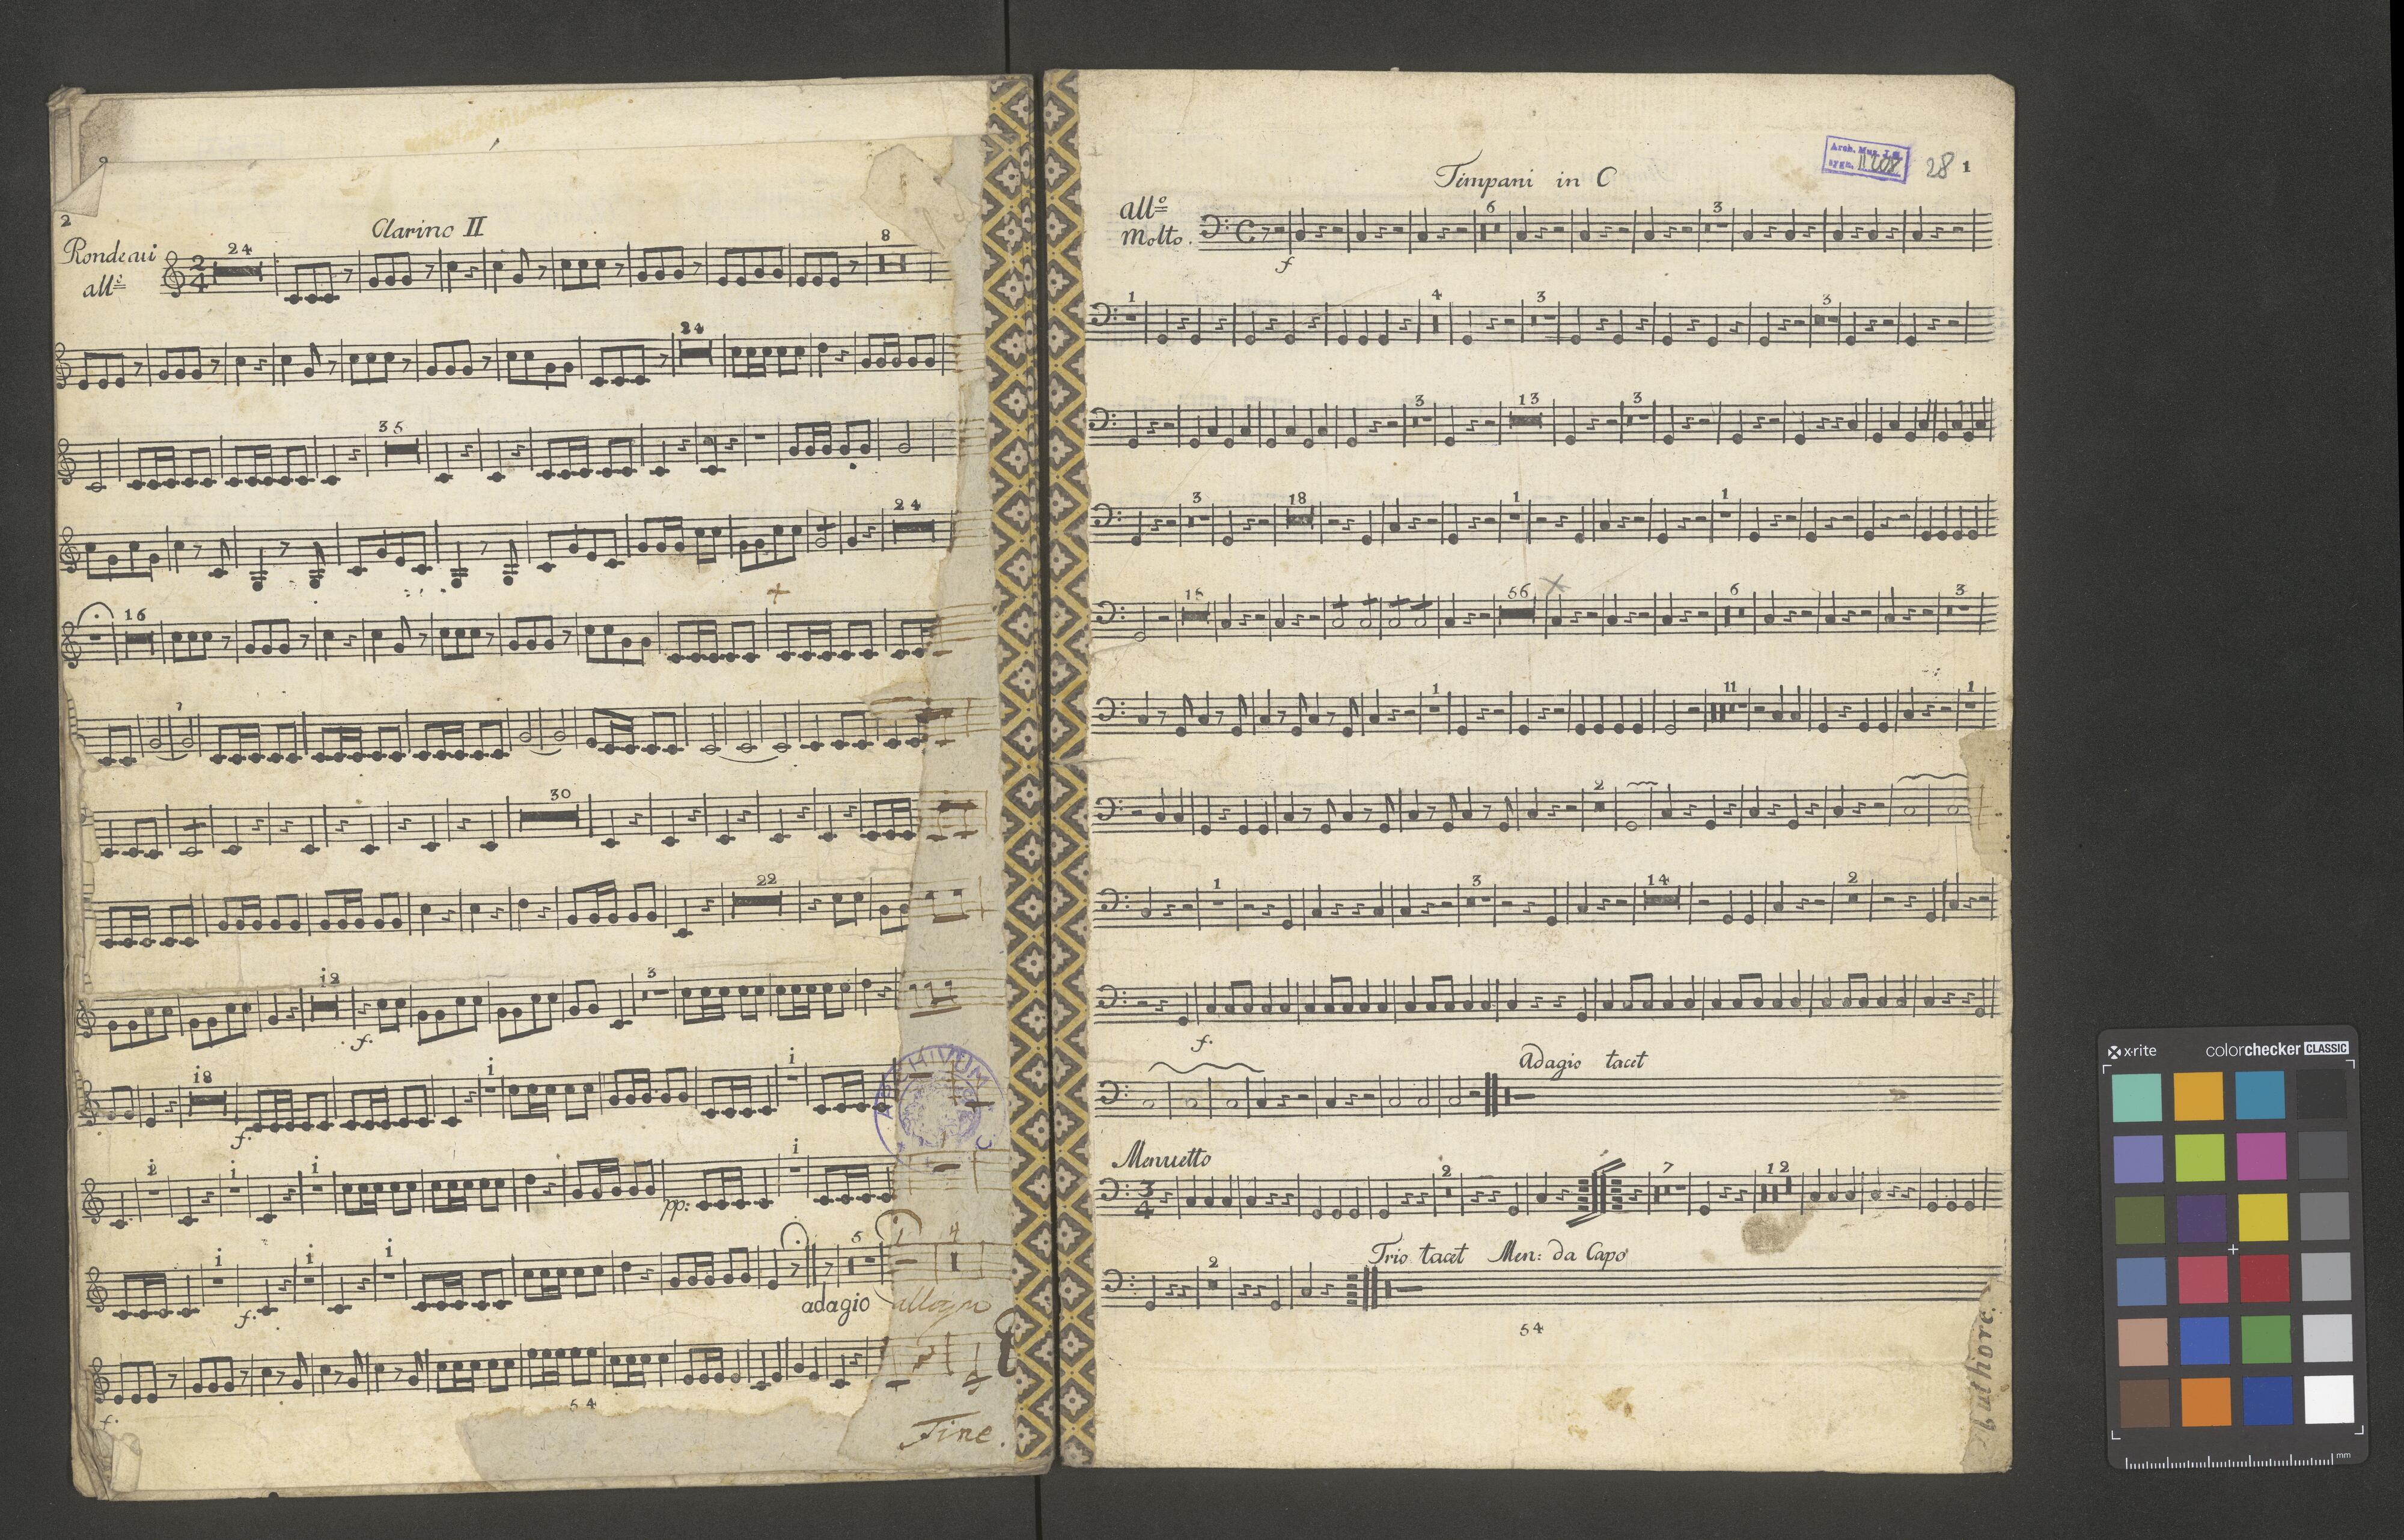 2
Clarino II
Rondeau
all:
24
8
24
35
24
16
30
22
i2
3
f.
i8
i
i
f.
i
i
i
i
pp:
i
i
i
5
4
f.
adagio
allegro
f.
54
Fine.
Arch. Muz. J.G.
sygn. II
28 1
Timpani in C
allº
Molto.
6
3
f
1
4
3
3
3
13
3
3
18
1
1
56
6
3
1
11
1
2
1
3
14
2
f.
Adagio tacet
Menuetto
2
7
12
2
Trio tacet Men: da Capo
54
Authore
x-rite colorchecker CLASSIC
mm